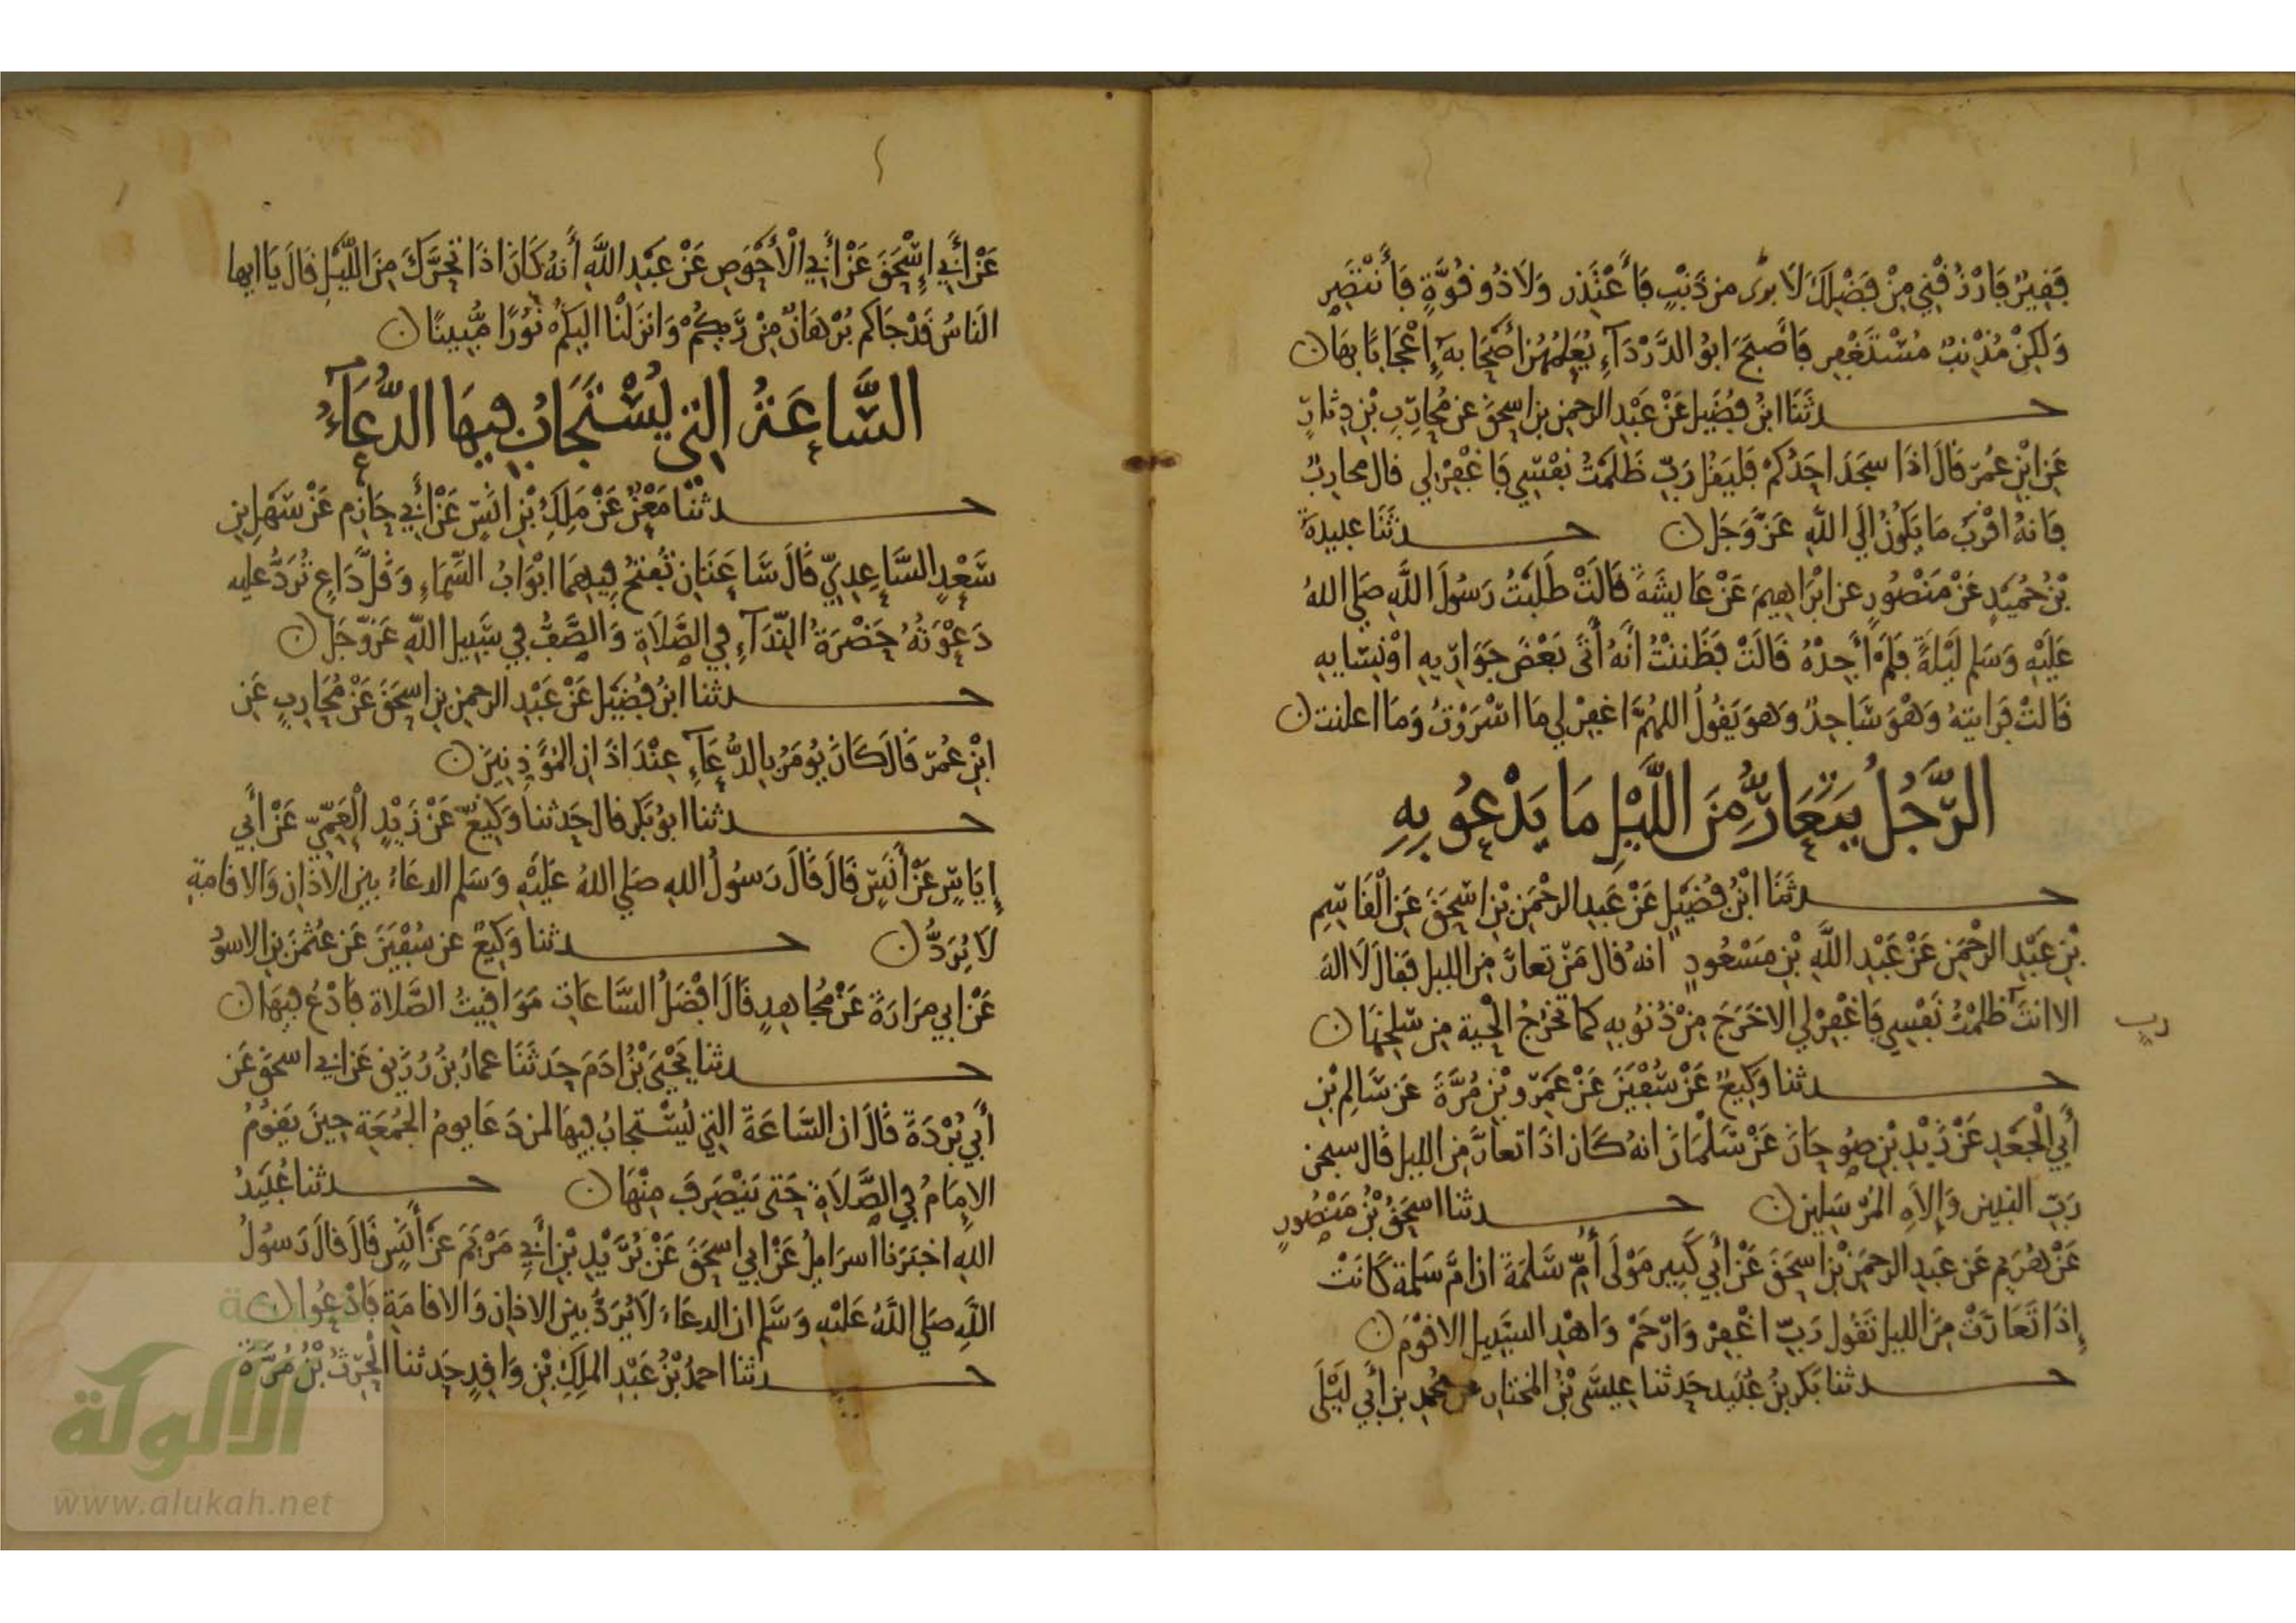 فَقِيرٌ فَارْزُقْنِي مِنْ فَضْلِكَ لَا بَرِيءٌ مِن ذَنْبٍ فَأَعْتَذِر وَلَا ذُو قُوَّةٍ فَأَنْتَصِر
وَلَكِنْ مُذْنِبٌ مُسْتَغْفِر فَأَصْبَحَ ابُو الدَّرْدَآءِ يُعَلِّمُهُنَّ أَصْحَابَهُ إِعْجَابًا بِهَا ن
حدثَنَا ابْنُ فُضَيْل عَنْ عَبْدِ الرحمن بن اسحق عن مُحَارِبِ بْنِ دِثَارٍ
عَنِ ابْنِ عُمَرَ قَالَ اذَا سجَدَ احَدُكُمْ فَليَقُلْ رَبِّ ظَلَمْتُ نَفْسِي فَاغْفِرْ لِي قال محارِبٌ
فَانهُ اقْرَبُ مَا يَكُونُ الَى اللَّهِ عَزَّ وَجَل ن حدثَنَا عبيدةُ
بْنُ حُمَيْدٍ عَنْ مَنْصُورٍ عن ابْرَاهِيمَ عَنْ عَايِشَةَ قَالَتْ طَلَبْتُ رَسُولَ اللَّهِ صَلى اللهُ
عَلَيْهِ وَسَلم لَيْلَةً فَلَمْ أَجِدْهُ قَالَتْ فَظَننْتُ أَنَّهُ أَتَى بَعْضَ جَوَارِيهِ اوْ نِسَايِهِ
قَالتْ فَرَايتهُ وَهْوَ سَاجِدٌ وَهوَ يَقُولُ اللهُمَّ اغفِرْ لِي مَا اسْرَرْتُ وَمَا اعلنت ن
الرَّجُلُ يَتَعَارُّ مِنَ اللَّيْلِ مَا يَدْعُو بِهِ
حدثَنَا ابْنُ فُضَيْلٍ عَنْ عَبدِ الرحْمَنِ بْنِ اسْحَقَ عَنِ الْقَاسِمِ
بْنِ عَبْدِ الرحْمَنِ عَنْ عَبْدِ اللَّهِ بْنِ مَسْعُودٍ انهُ قَال مَنْ تعارَّ مِن الليل فَقالَ لَا الهَ
الا انتَ ظلَمْتُ نَفْسِي فَاغْفِرْ لِي الا خَرَجَ مِنْ ذُنُوبِهِ كما تخرُجُ الْحية من سلخها ن
رب
حدثنا وَكِيعٌ عَنْ سُفْيَنَ عَنْ عَمْرِو بْنِ مُرَّةَ عَن سَالِمِ بْنِ
أَبِي الْجَعْدِ عَنْ زَيْدِ بْنِ صُوحَانَ عَنْ سَلْمَانَ انهُ كَان اذَا تعارَّ مِن الليل قَال سبحن
رَبِّ النبيين وَإِلَاهِ المُرْسَلِين ن حدثنا اسْحَقُ بْنُ مَنْصُورٍ
عَنْ هُرَيْمٍ عَن عَبدِ الرحمَنِ بْنِ اسحَقَ عَنْ أَبِي كَبِير مَوْلَى أُمِّ سَلَمَةَ ان امَّ سَلمة كَانَتْ
إِذَا تَعَارَّتْ مِنَ الليل تَقُول رَبِّ اغْفِرْ وَارْحَمْ وَاهْدِ السَّبِيل الاقْوَم ن
حدثنا بَكر بنُ عُبَيد حَدثنا عِيسَى بْنُ المُختار عن مُحَمد بن أَبِي لَيْلَى
عَنْ أَبِي إِسْحَقَ عَنْ أَبِي الْأَحْوَصِ عَنْ عَبْدِ اللَّهِ أَنهُ كَانَ اذَا تَحَرَّكَ مِنَ اللَّيْلِ قَالَ يَا ايها
النَاسُ قَدْ جَاكم بُرْهَانٌ مِنْ رَبِكُمْ وَانزَلْنَا اليكُمْ نُورًا مُّبِينًا ن
السَّاعَةُ التِي يُسْتَجَابُ فِيهَا الدُّعَآءُ
حدثَنَا مَعْنٌ عَنْ مَلِكِ بْنِ انَسٍ عَنْ أَبِي حَازِم عَنْ سَهْلِ بْنِ
سَعْدٍ السَّاعِدِيِّ قَالَ سَاعَتَانِ تُفتحُ فِيهِمَا ابْوَابُ السَّمَاءِ وَقَلَّ دَاعٍ تُرَدُّ عليه
دَعْوَتُهُ حَضْرَةُ النِّدَآءِ فِي الصَّلَاةِ وَالصَّفُّ فِي سَبِيل اللَّهِ عَزوجَل ن
حدثنا ابْنُ فُضَيْل عَنْ عَبْدِ الرحمن بن اسحَقَ عَنْ مُحَارِبٍ عَنِ
ابْنِ عُمَرَ قَالَ كَانَ يُومَرُ بِالدُّعَآءِ عِنْدَ اذَانِ الْمُؤَذِنِينَ ن
حدثنا ابوُ بَكر قال حَدثنا وَكِيعٌ عَنْ زَيْدٍ الْعَمِّيِّ عَنْ أَبِي
إِيَاسٍ عَنْ أَنَسٍ قَالَ قَالَ رَسُولُ اللهِ صَلى اللهُ عَلَيْهِ وَسَلم الدعَاءُ بين الاذَانِ وَالاقامةِ
لَا يُرَدُّ ن حدثنا وَكِيعٌ عن سُفْيَنَ عَن عُثْمَن بنِ الاسوَدِ
عَنْ ابي مرَارَةَ عَنْ مُجَاهِدٍ قَالَ افْضَلُ السَّاعَاتِ مَوَاقِيتُ الصَّلاة فَادْعُ فيهَا ن
حدثنا يَحْيَى بْنُ ادَمَ حَدثَنَا عمارُ بْنُ رُزَيقٍ عَن ابي اسحق عَن
أَبِي بُرْدَةَ قَالَ ان السَّاعَةَ التِي يُسْتجابُ فِيهَا لمن دَعَا يومُ الْجُمُعَةِ حِينَ يَقُومُ
الإِمَامُ فِي الصَّلَاةِ حَتى يَنْصَرِفَ مِنْهَا ن حدثنا عُبَيْدُ
اللهِ اخبَرَنا اسرَايلُ عَنْ ابي اسحَقَ عَنْ بُرَيْدِ بْنِ أَبِي مَرْيَمَ عَنْ أَنَسٍ قَالَ قَالَ رَسُولُ
اللَّهِ صَلى اللَّهُ عَلَيْهِ وَسَلم ان الدعَاءَ لَا يُرَدُّ بين الاذانِ وَالاقامَةِ فَادْعُوا ن
حدثنا احمدُ بْنُ عَبْدِ المَلِكِ بْنِ وَاقِدٍ حَدثنا الْحَرثُ بْنُ مُرَّةَ
الألوكة
www.alukah.net